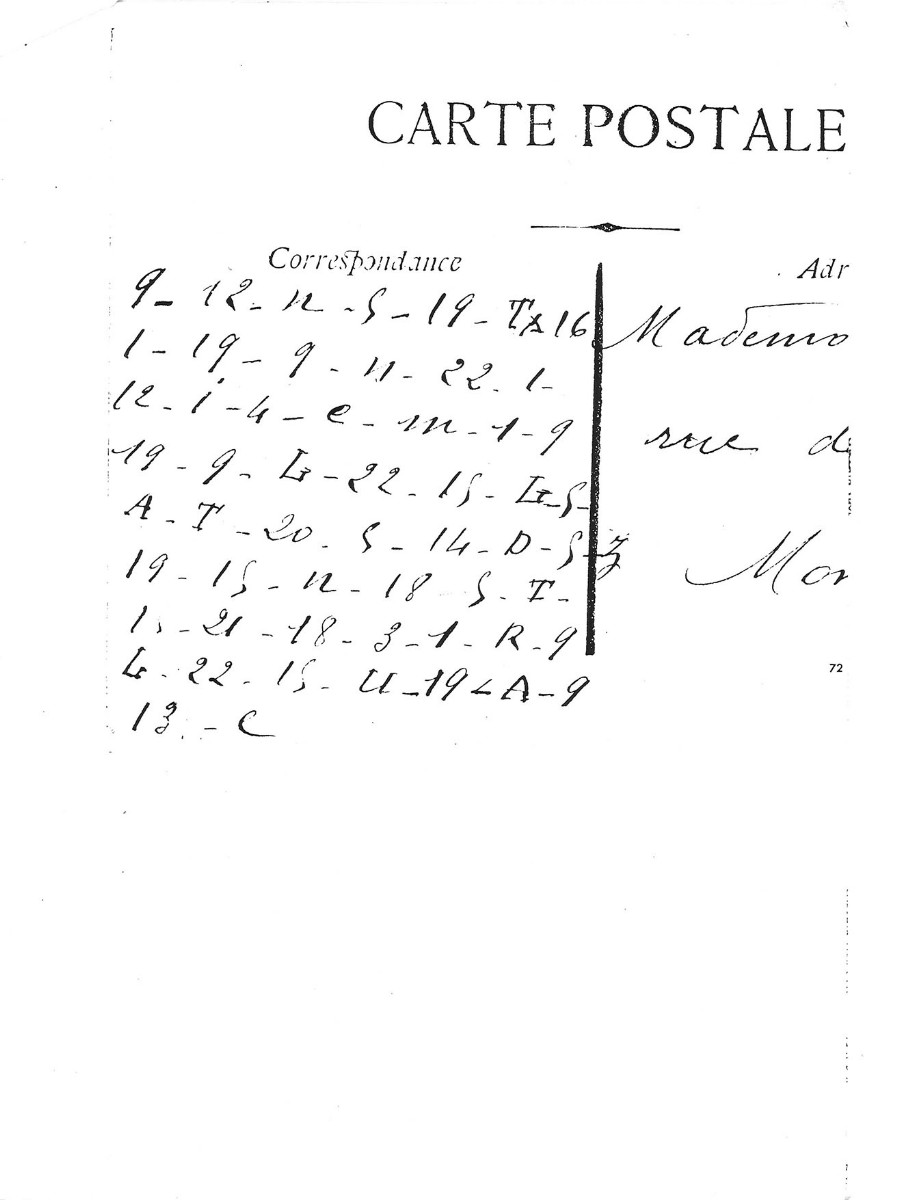 CARTE POSTALE
Correspondance
Adr
9 - 12 - n - 5 - 19 - T x 16
1 - 19 - 9 - n - 22 - 1 -
12 - i - 4 - e - m - 1 - 9
19 - 9 - L - 22 - 15 - L - 5 -
A - T - 20 - 5 - 14 - D - 5 - Z
19 - 15 - n - 18 5 - T -
15 - 21 - 18 - 3 - 1 - R - 9
L - 22 - 15 - U - 19 - A - 9
13 - C
Mademo
rue d
Mon
72